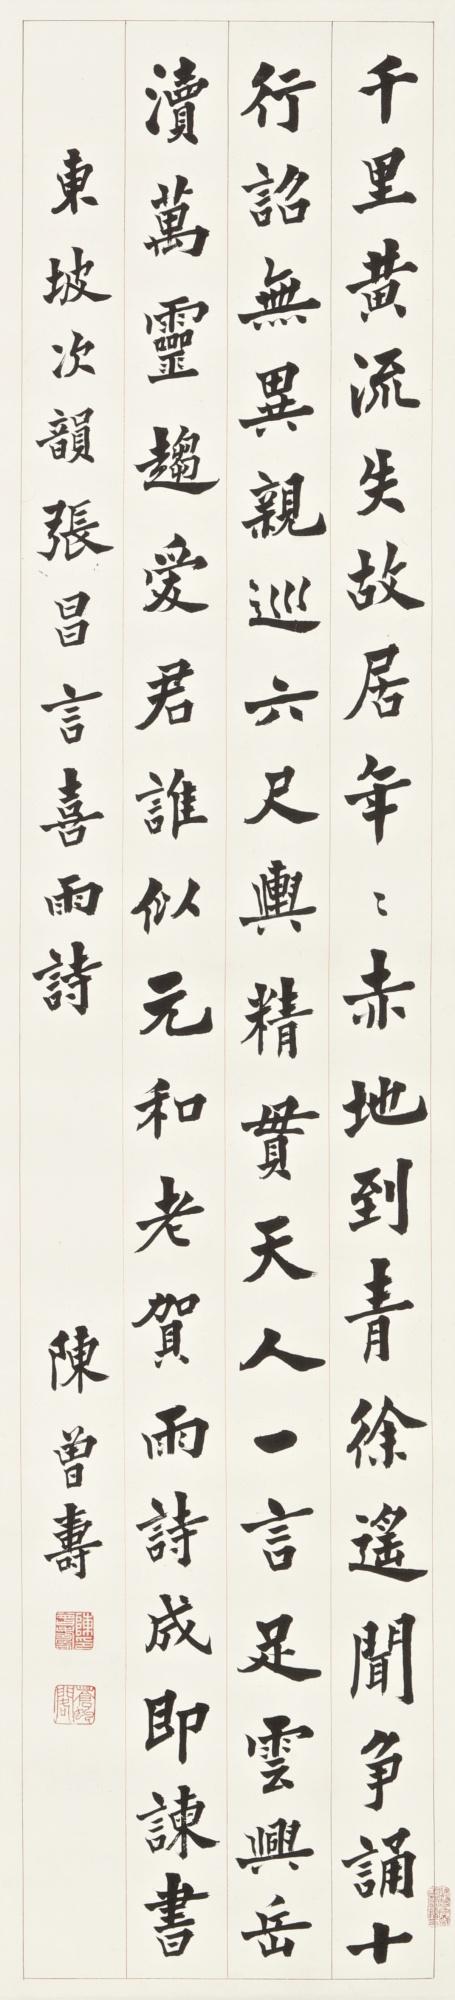 千里黄流失故居年〻赤地到青徐遙聞争誦十
行詔無異親巡六尺輿精貫天人一言足雲興岳
瀆萬靈趨愛君誰似元和老賀雨詩成即諫書
東坡次韻張昌言喜雨詩
陳曾壽